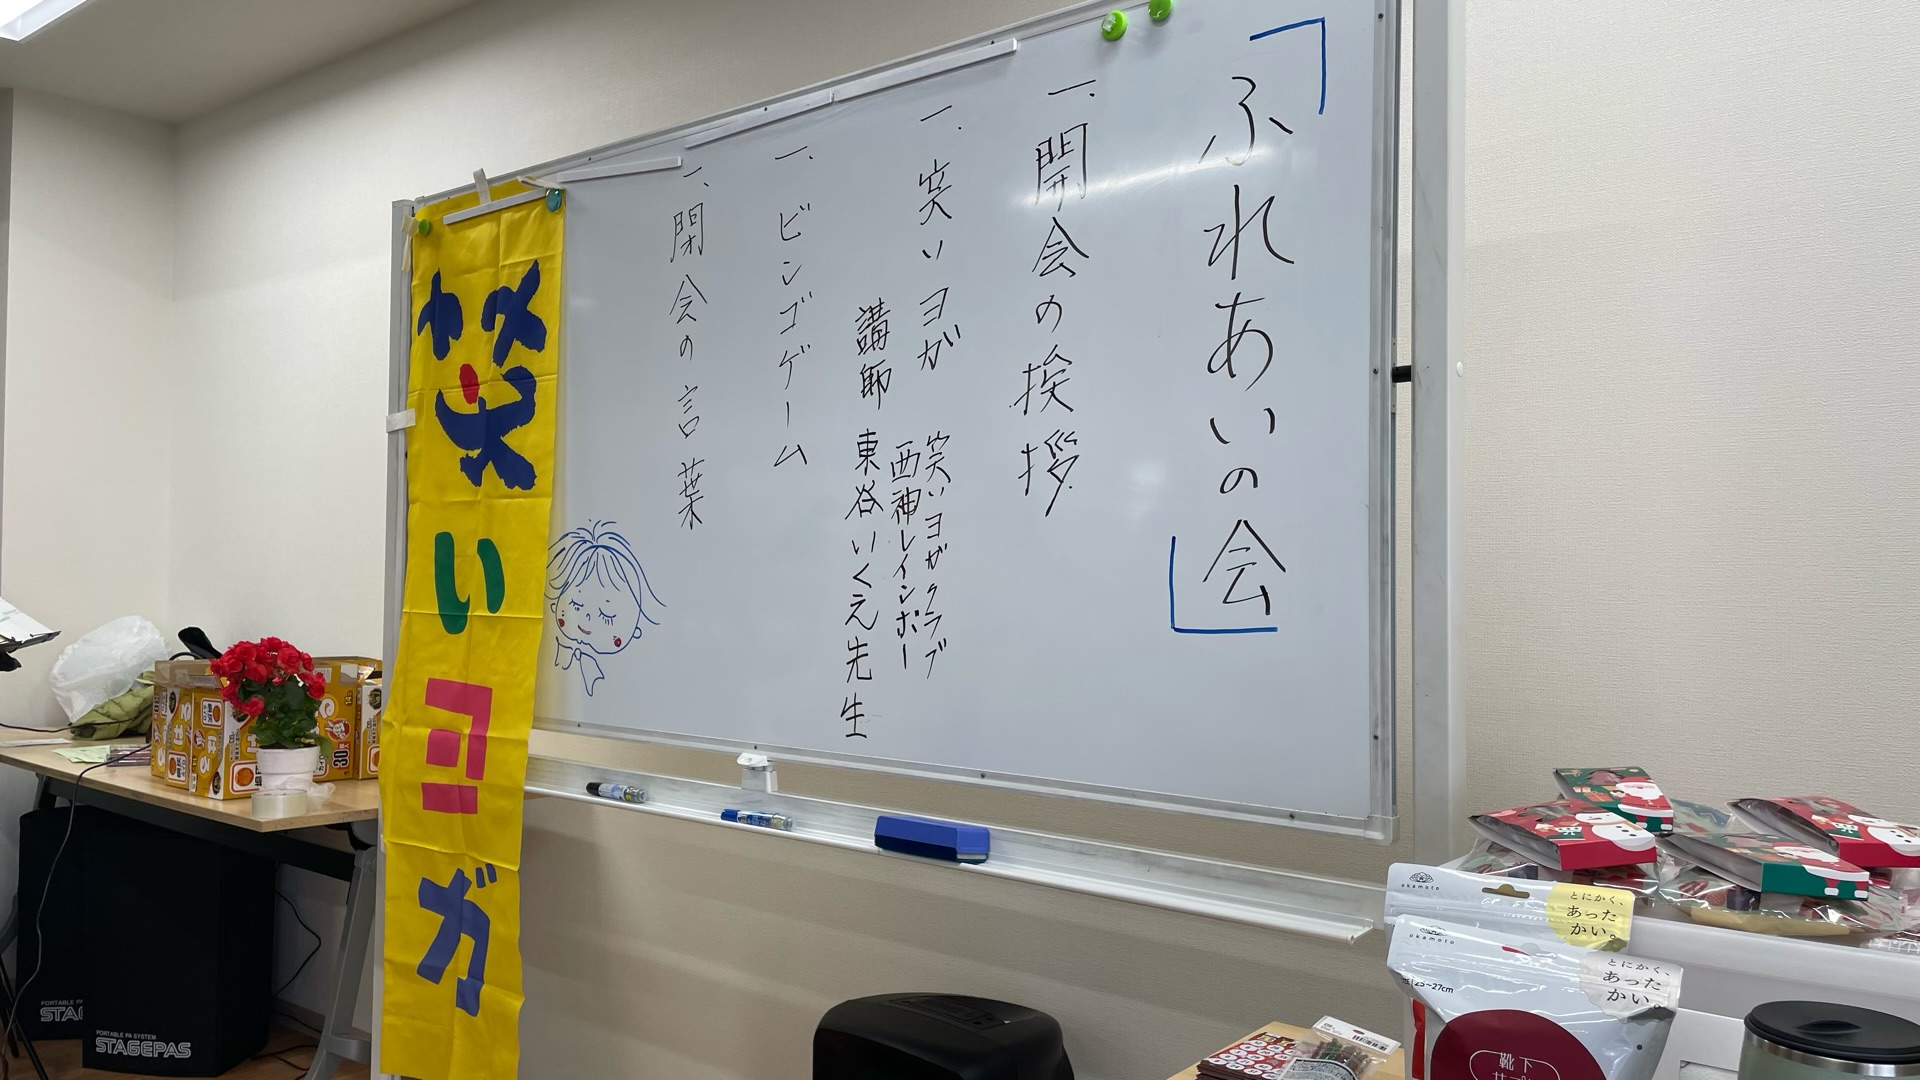 「ふれあいの会」
一、開会の挨拶
一、笑いヨガ
笑いヨガクラブ
西神レインボー
講師 東谷いくえ先生
一、ビンゴゲーム
一、閉会の言葉
笑いヨガ
PORTABLE PA SYSTEM
STAGEPAS
PORTABLE PA
STA
30
okamoto
とにかく、
あった
かい。
okamoto
とにかく、
あった
かい。
25~27cm
靴下